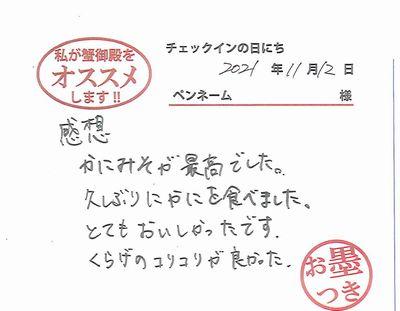 私が蟹御殿を
オススメ
します!!
チェックインの日にち
2021年11月12日
ペンネーム 様
感想
かにみそが最高でした。
久しぶりにかにを食べました。
とてもおいしかったです。
くらげのコリコリが良かった.
お墨
つき